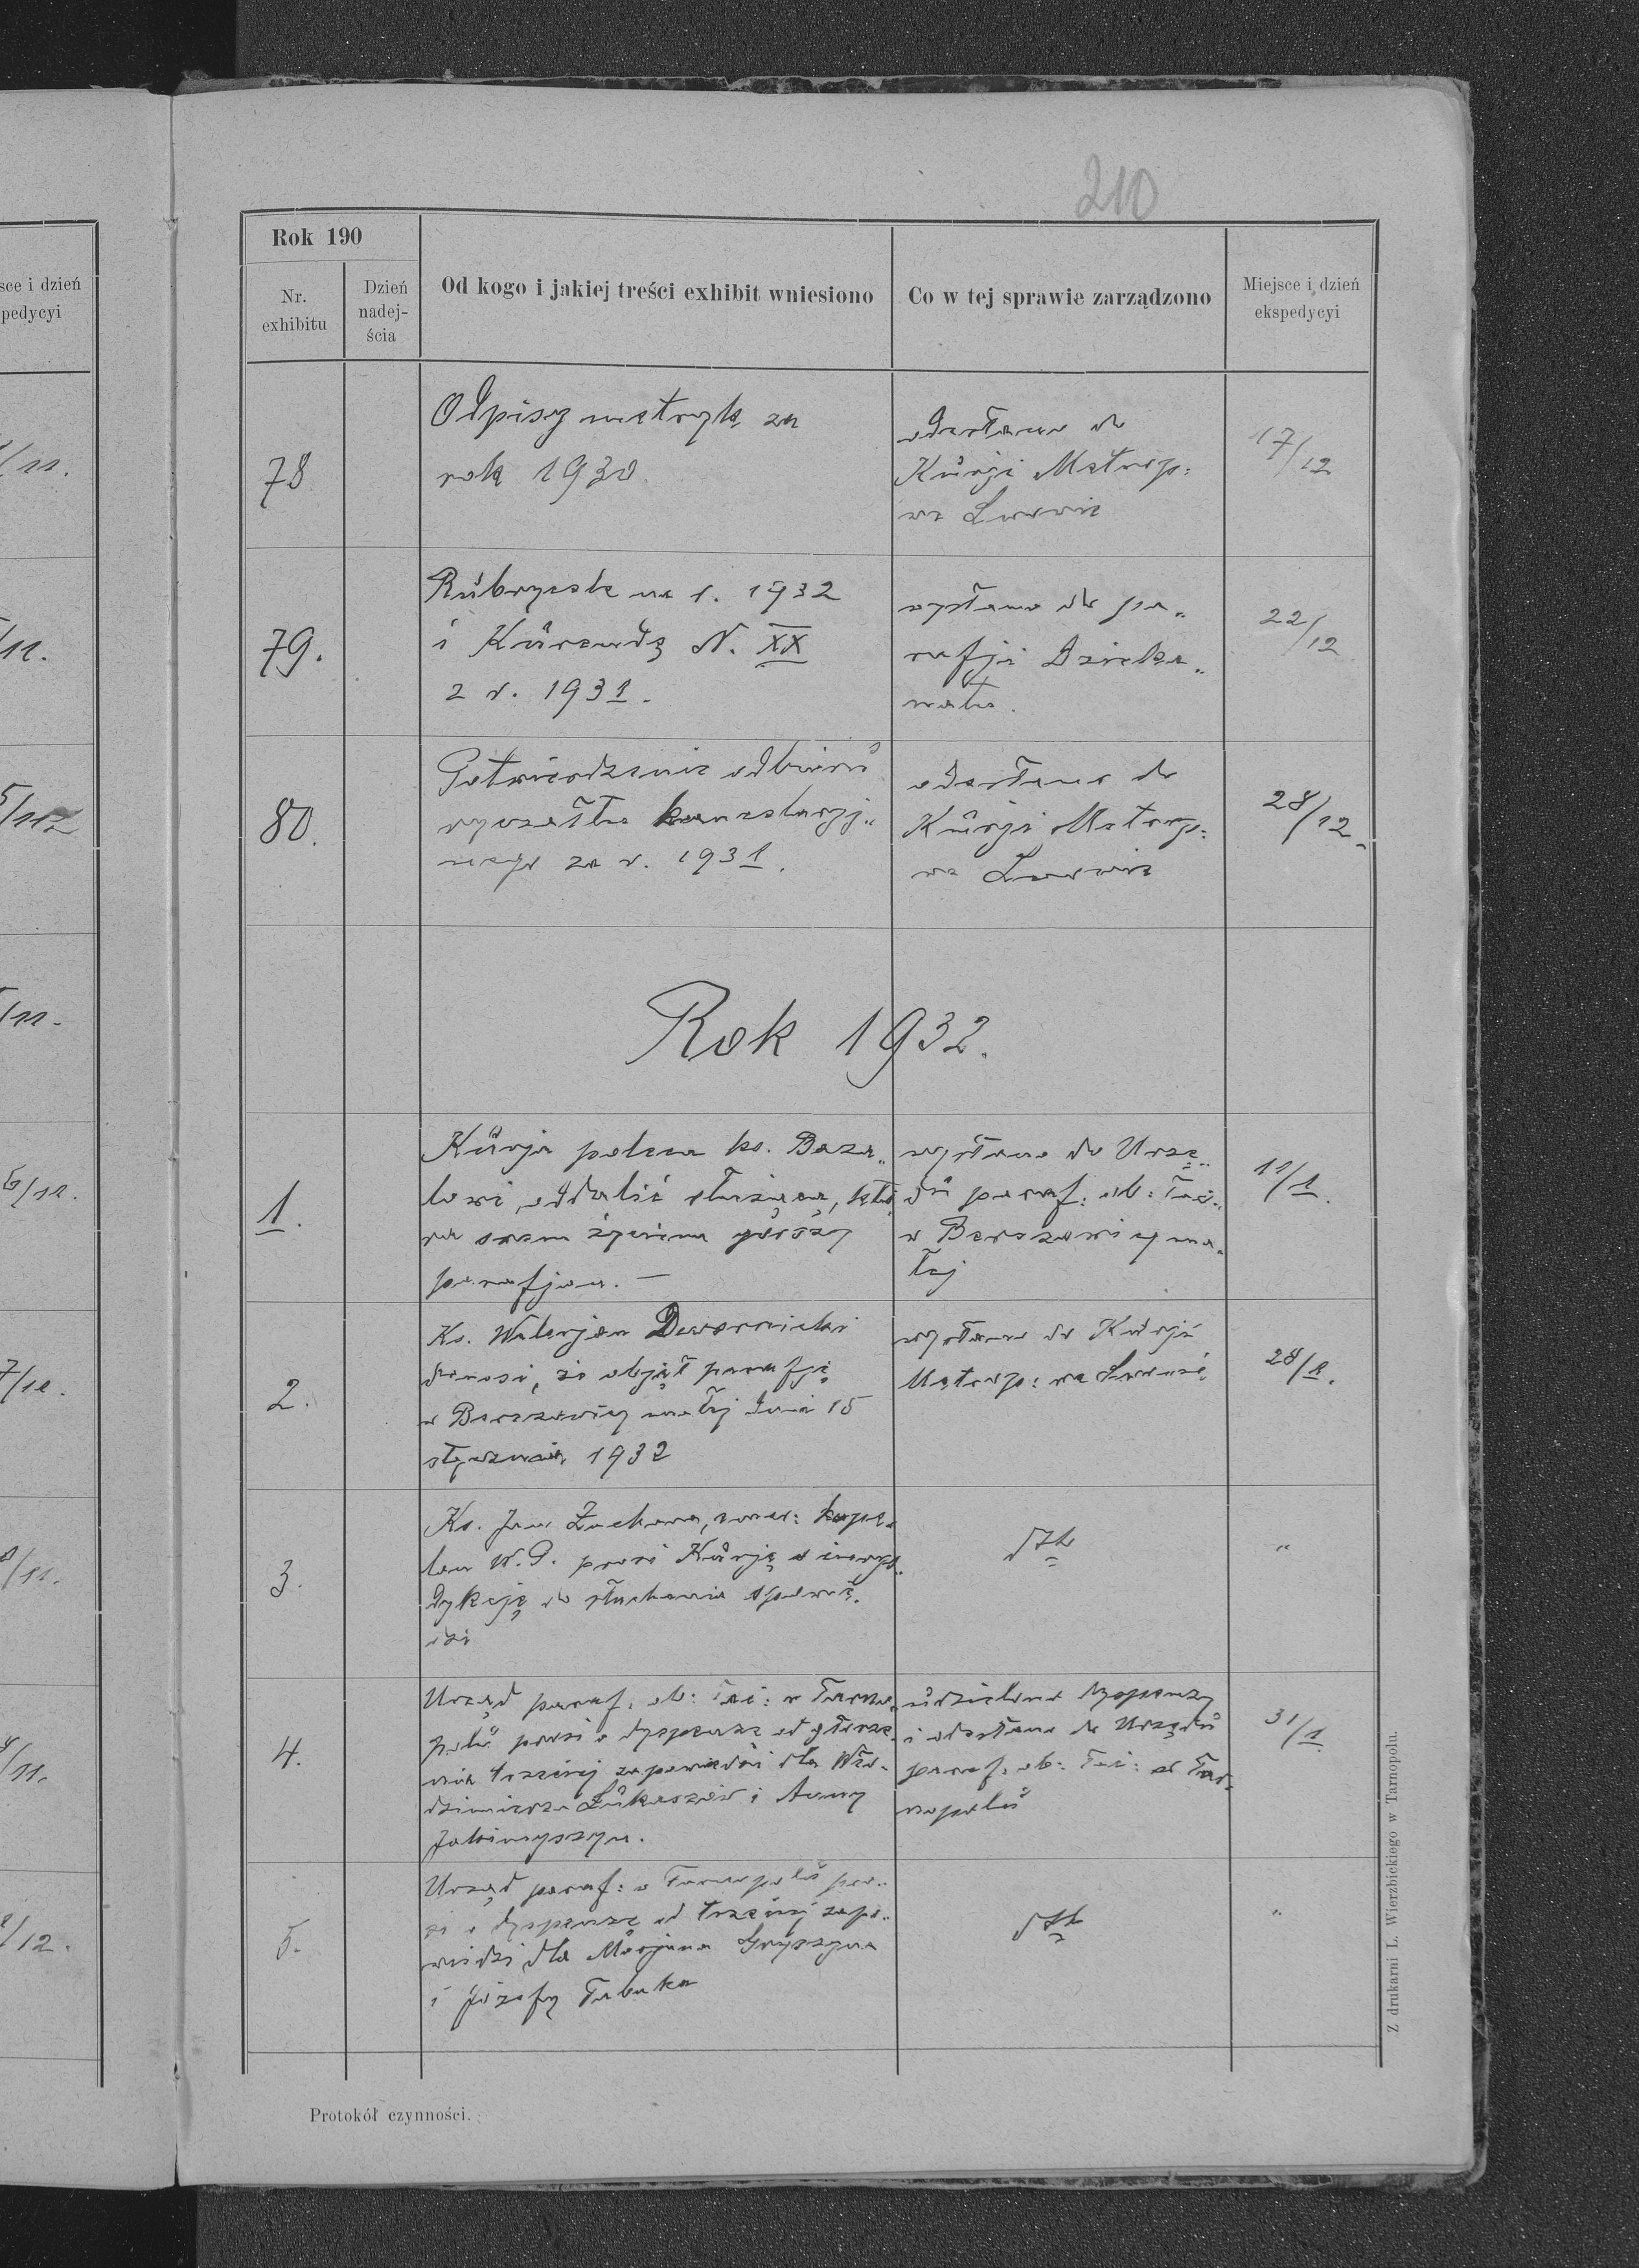 210
Rok 190
Nr.
exhibitu
Dzień
nadej-
ścia
Od kogo i jakiej treści exhibit wniesiono
Co w tej sprawie zarządzono
Miejsce i dzień
ekspedycyi
sce i dzień
pedycyi
78
Odpisy metryk za
rok 1930.
odesłano do
Kurji Metrop:
we Lwowie
17/12
79.
Rubrycele na r. 1932
i Kurendę N. XX
z r. 1931.
wysłano do pa„
rafji Dzieka„
natu.
22/12
80.
Potwierdzenie odbioru
ryczałtu kancelaryj„
nego za r. 1931.
odesłano do
Kurji Metrop:
we Lwowie
28/12.
Rok 1932.
1.
Kurja poleca ks. Baza„
lowi oddalić służącą, któ„
ra swem życiem gorszy
parafjan. —
wysłano do Urzę„
du paraf: ob: łać:
w Borszowicy ma„
łej
11/1.
2.
Ks. Walerjan Dwornicki
donosi, że objął parafję
w Berezowicy małej dnia 15
stycznia 1932
wysłano do Kurji
Metrop: we Lwowie
28/1.
3.
Ks. Jan Żuchowa, kape„
lan W. P. prosi Kurję o juryz„
dykcję do słuchania spowie„
dzi
dtto
„
4.
Urząd paraf. ob: łać: w Tarno„
polu prosi o dyspenzę od głosze„
nia trzeciej zapowiedzi dla Wło„
dzimierza Łukaszów i Anny
Jakimyszyn.
udzielono dyspenzy
i odesłano do Urzędu
paraf. ob: łać: w Tar„
nopolu
31/1
5.
Urząd paraf: w Tarnopolu pro„
si o dyspenzę od trzeciej zapo„
wiedzi dla Marjana Gryszyna
i Józefy Tabaka
dtto
„
Protokół czynności.
Z drukarni L. Wierzbickiego w Tarnopolu.